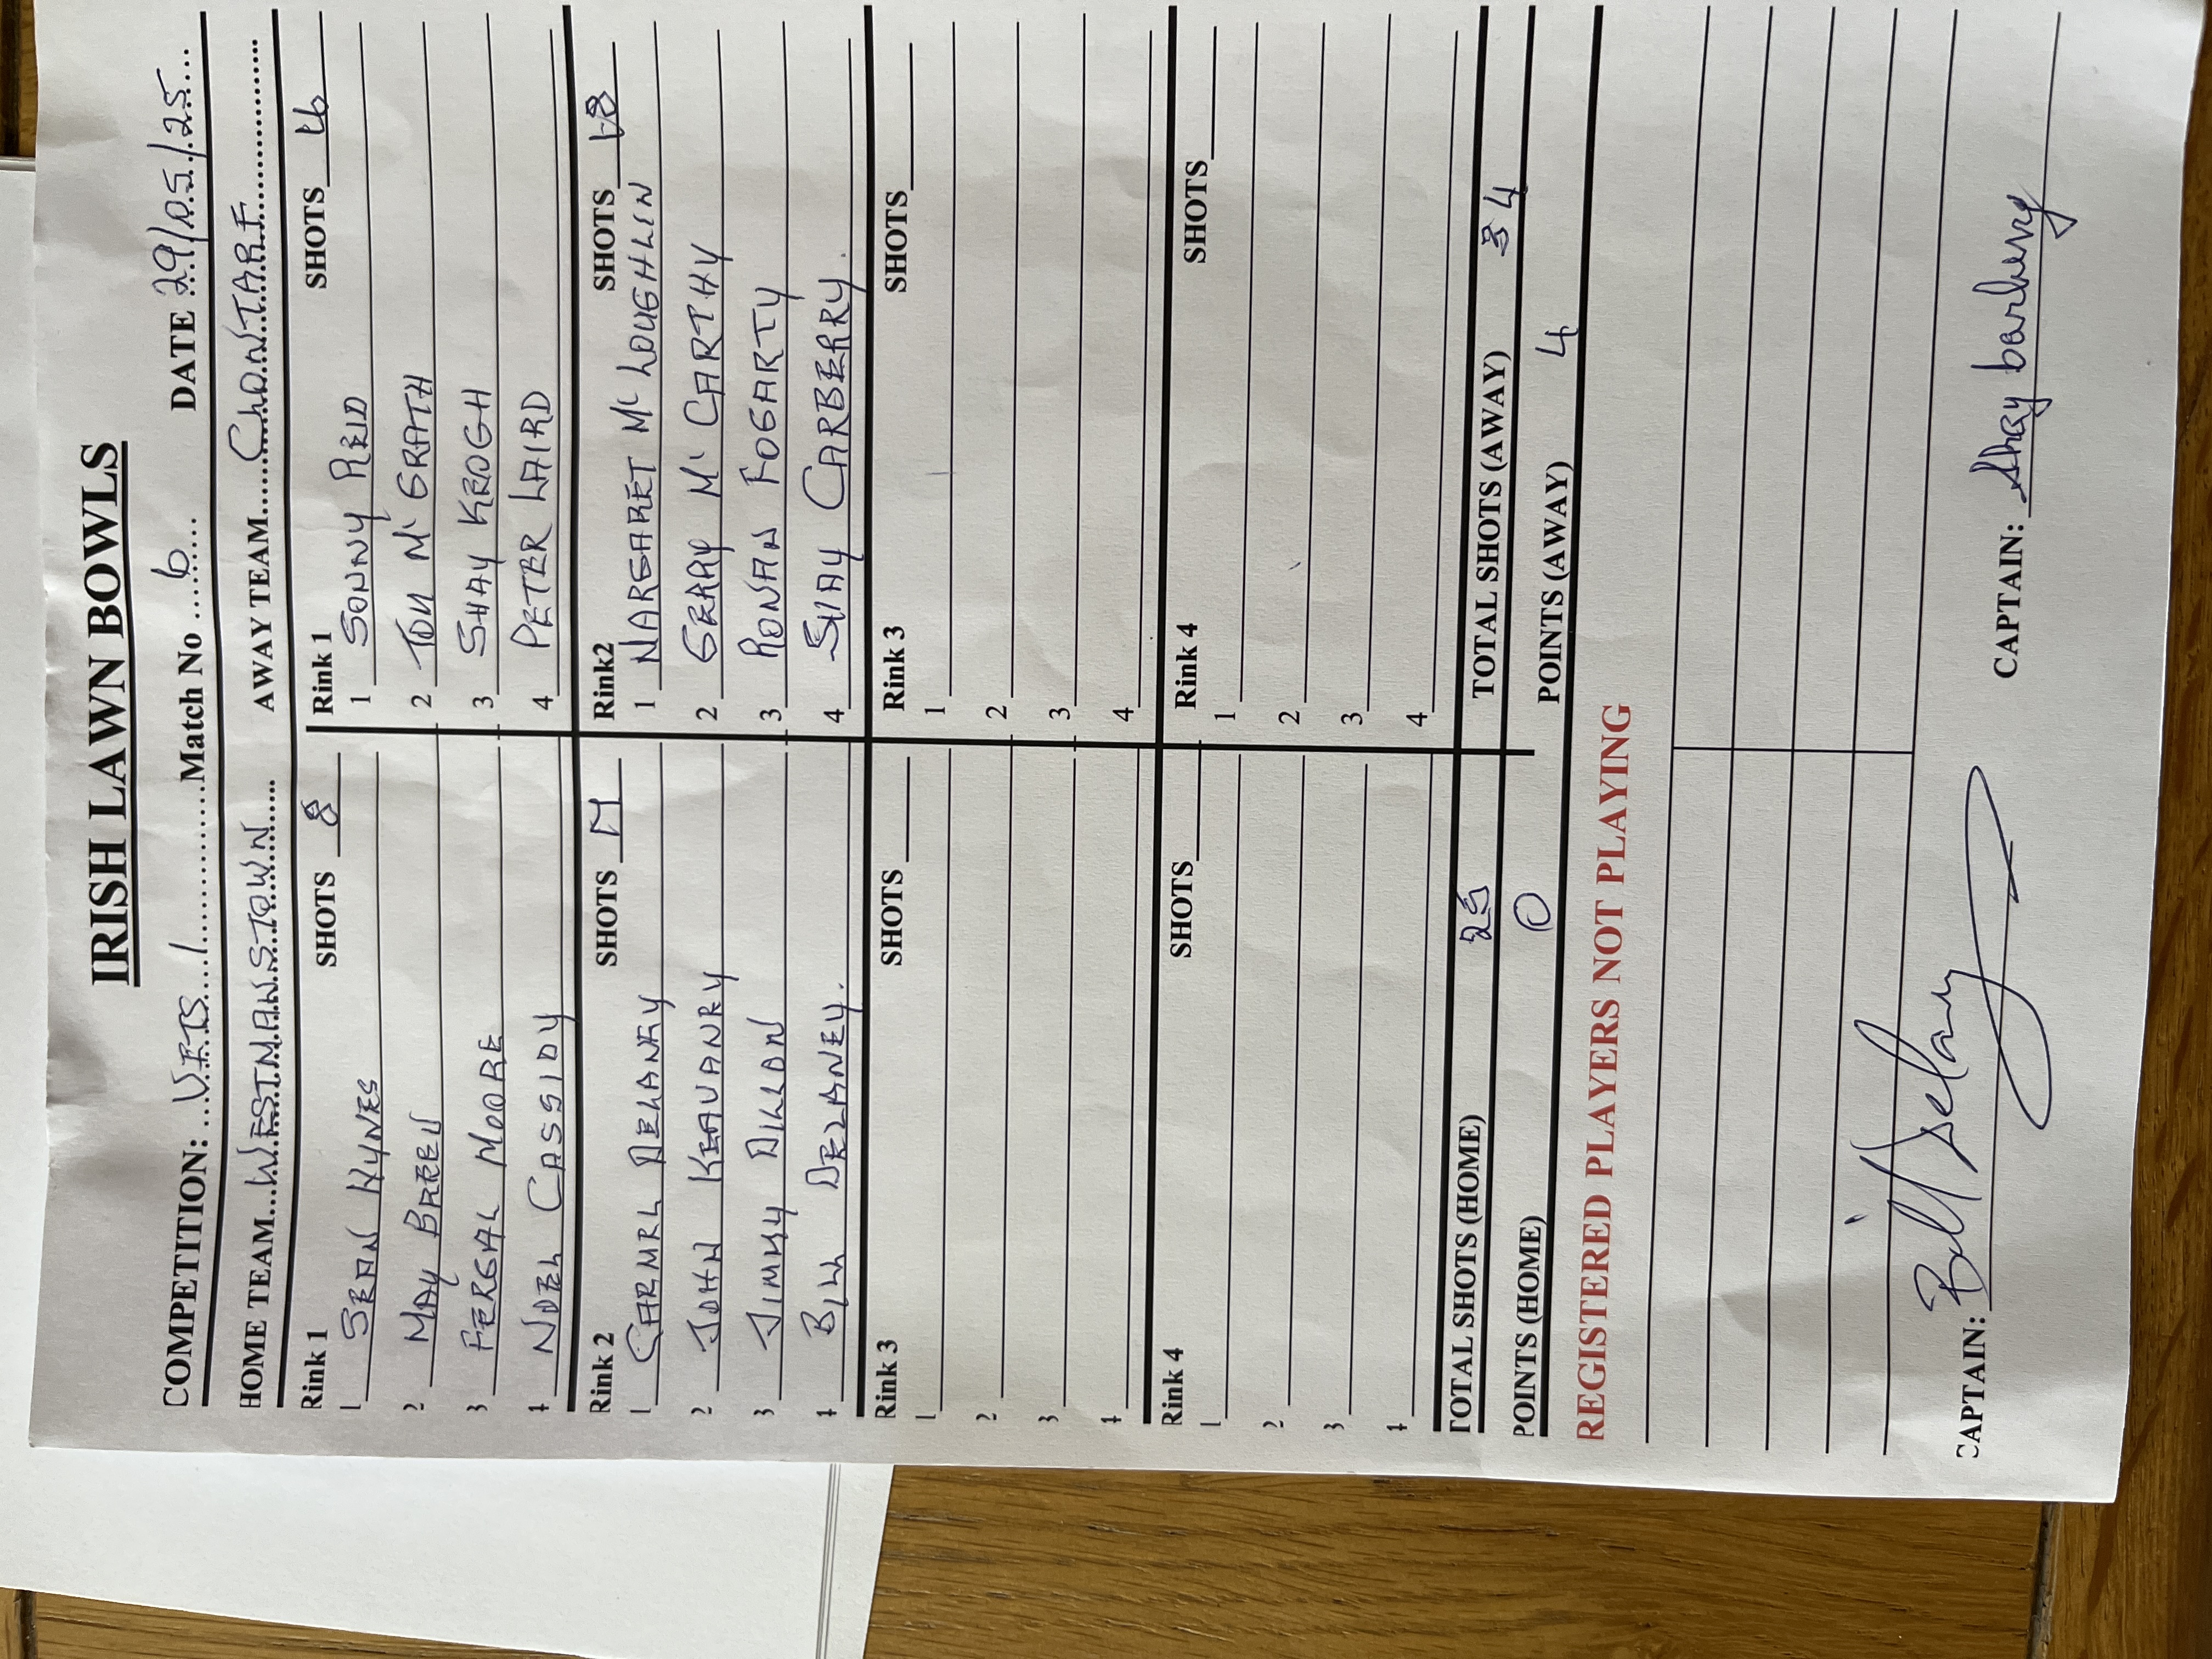 IRISH LAWN BOWLS
COMPETITION: ...VETS.....1..............Match No ......6...... DATE 29/05/25...
HOME TEAM...WESTMANSTOWN... AWAY TEAM......CLONTARF...............
Rink 1 SHOTS 8 Rink 1 SHOTS 16
1 SEAN HYNES 1 SONNY REID
2 MAY BREEN 2 TOM Mc GRATH
3 FERGAL MOORE 3 SHAY KEOGH
4 NOEL CASSIDY 4 PETER LAIRD
Rink 2 SHOTS 17 Rink2 SHOTS 18
1 CARMEL DELANEY 1 MARGARET Mc LOUGHLIN
2 JOHN KEAVANEY 2 GERRY Mc CARTHY
3 JIMMY DILLON 3 RONAN FOGARTY
4 BILL DELANEY. 4 SHAY CARBERRY.
Rink 3 SHOTS Rink 3 SHOTS
1 1
2 2
3 3
4 4
Rink 4 SHOTS Rink 4 SHOTS
1 1
2 2
3 3
4 4
TOTAL SHOTS (HOME) 25 TOTAL SHOTS (AWAY) 34
POINTS (HOME) 0 POINTS (AWAY) 4
REGISTERED PLAYERS NOT PLAYING
CAPTAIN: Bill Delany CAPTAIN: Shay Carberry